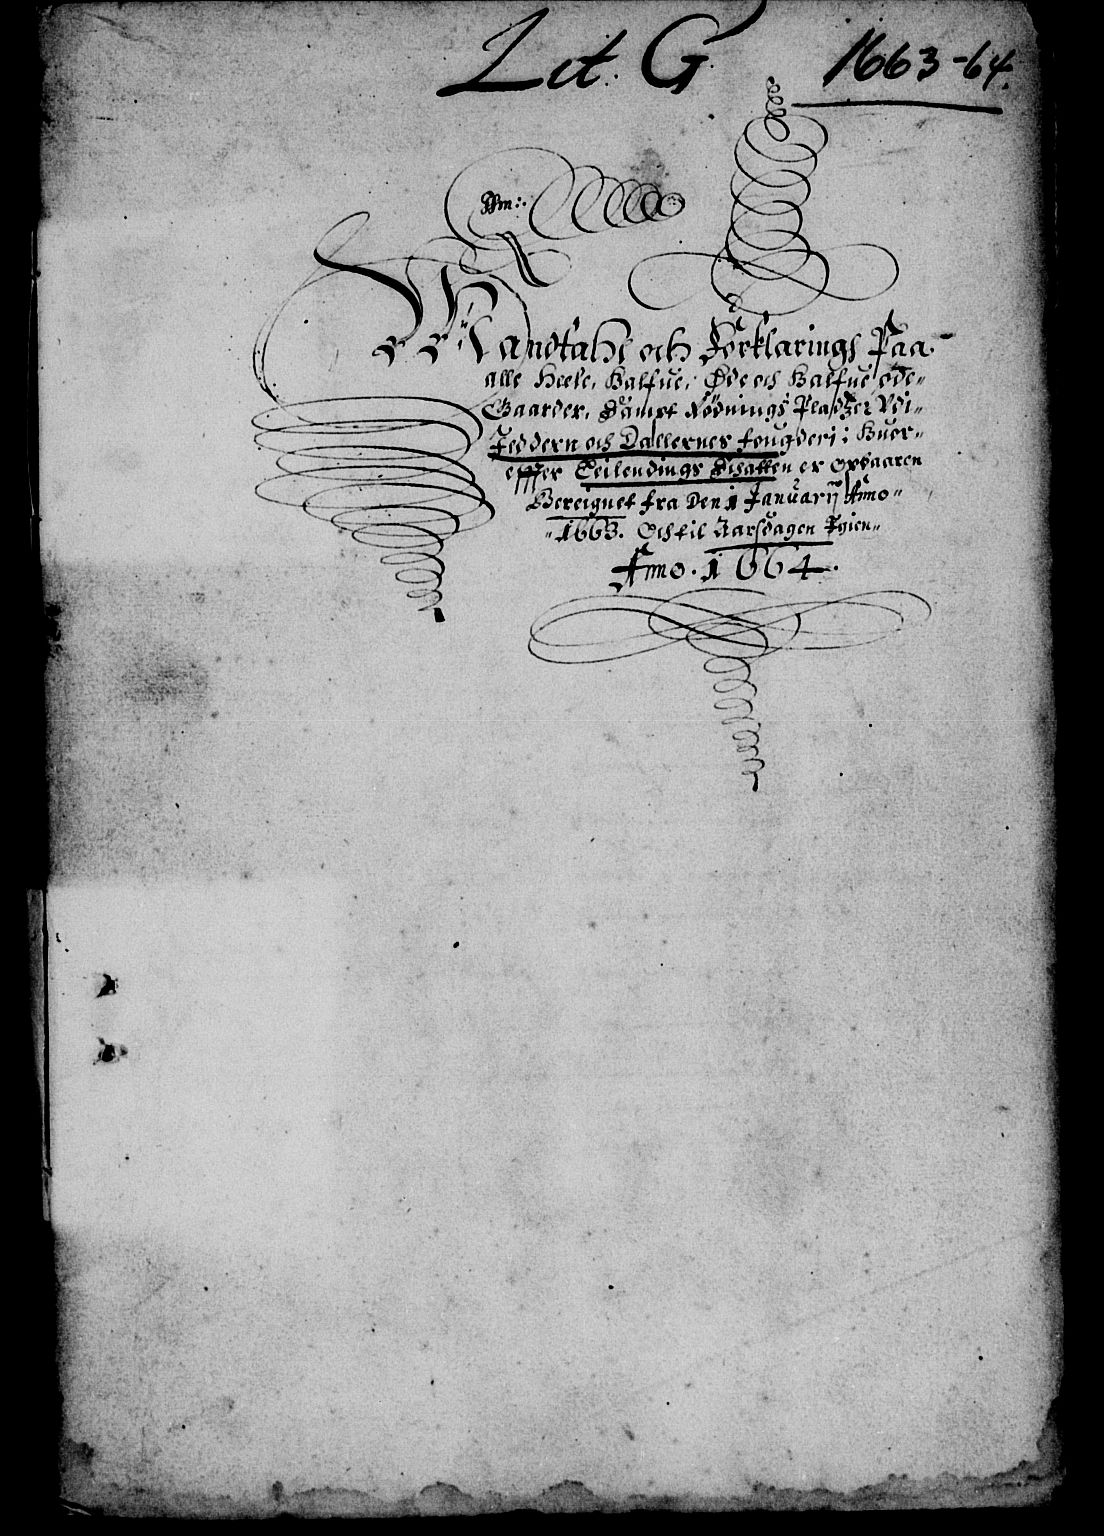 Lit. G 1663-64.
Mandtahl och Forklarings Paa
alle Heele, Halfue, Øde och Halfue øde
Gaarder, Sampt Rødnings Pladzer Vdi
Jeddern och Dallernes fougderj; Huor
effter Leilendings Schatten er opbaaren
Bereignet fra Den 1 Januarij Anno
1663. Och til Aarsdagen Igien
Anno. 1664.